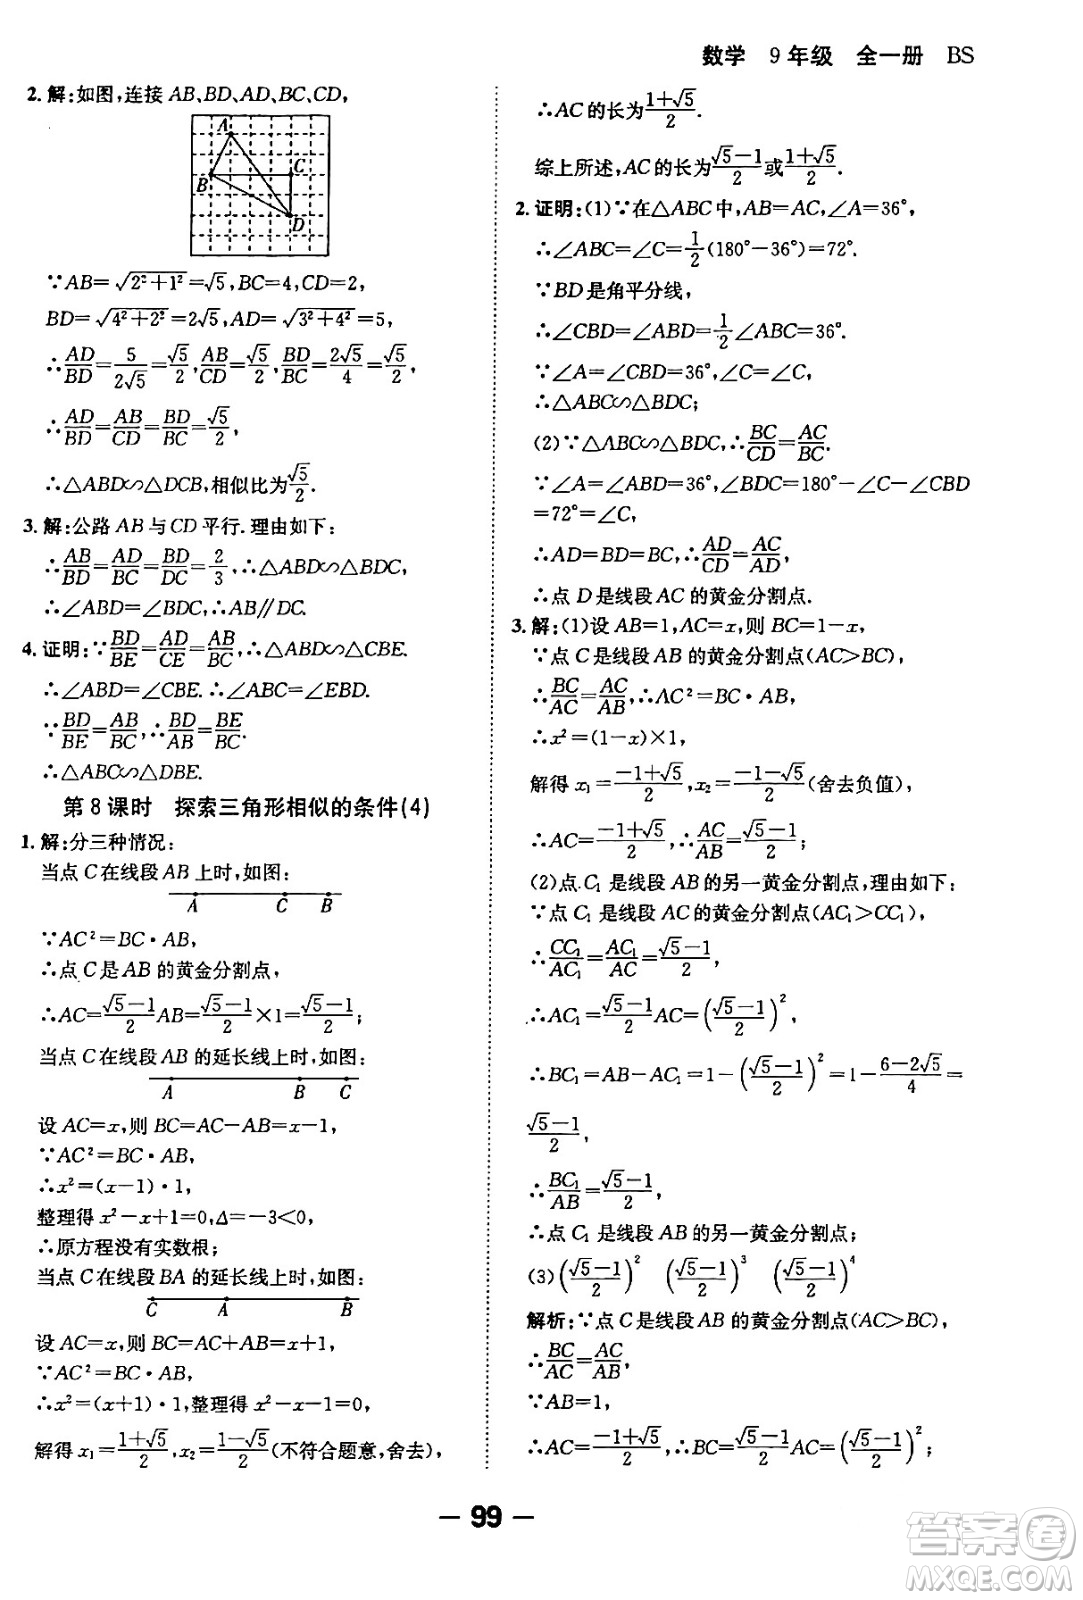 数学 9年级 全一册 BS
2. 解:如图,连接 AB,BD,AD,BC,CD,
A
B
C
D
∵AB=√(2²+1²)=√5,BC=4,CD=2,
BD=√(4²+2²)=2√5,AD=√(3²+4²)=5,
∴AD/BD=5/(2√5)=√5/2,AB/CD=√5/2,BD/BC=2√5/4=√5/2,
∴AD/BD=AB/CD=BD/BC=√5/2,
∴△ABD∽△DCB,相似比为√5/2.
3. 解:公路 AB 与 CD 平行.理由如下:
∴AB/BD=AD/BC=BD/DC=2/3,∴△ABD∽△BDC,
∴∠ABD=∠BDC,∴AB∥DC.
4. 证明:∵BD/BE=AD/CE=AB/BC,∴△ABD∽△CBE.
∴∠ABD=∠CBE.∴∠ABC=∠EBD.
∵BD/BE=AB/BC,∴BD/AB=BE/BC.
∴△ABC∽△DBE.
第 8 课时 探索三角形相似的条件(4)
1. 解:分三种情况:
当点 C 在线段 AB 上时,如图:
A C B
∵AC²=BC·AB,
∴点 C 是 AB 的黄金分割点,
∴AC=(√5-1)/2 AB=(√5-1)/2×1=(√5-1)/2;
当点 C 在线段 AB 的延长线上时,如图:
A B C
设 AC=x,则 BC=AC-AB=x-1,
∵AC²=BC·AB,
∴x²=(x-1)·1,
整理得 x²-x+1=0,Δ=-3<0,
∴原方程没有实数根;
当点 C 在线段 BA 的延长线上时,如图:
C A B
设 AC=x,则 BC=AC+AB=x+1,
∵AC²=BC·AB,
∴x²=(x+1)·1,整理得 x²-x-1=0,
解得 x₁=(1+√5)/2,x₂=(1-√5)/2(不符合题意,舍去),
∴AC 的长为(1+√5)/2.
综上所述,AC 的长为(√5-1)/2或(1+√5)/2.
2. 证明:(1)∵在△ABC 中,AB=AC,∠A=36°,
∴∠ABC=∠C=1/2(180°-36°)=72°.
∵BD 是角平分线,
∴∠CBD=∠ABD=1/2∠ABC=36°.
∵∠A=∠CBD=36°,∠C=∠C,
∴△ABC∽△BDC;
(2)∵△ABC∽△BDC,∴BC/CD=AC/BC.
∵∠A=∠ABD=36°,∠BDC=180°-∠C-∠CBD
=72°=∠C,
∴AD=BD=BC,∴AD/CD=AC/AD,
∴点 D 是线段 AC 的黄金分割点.
3. 解:(1)设 AB=1,AC=x,则 BC=1-x,
∵点 C 是线段 AB 的黄金分割点(AC>BC),
∴BC/AC=AC/AB,∴AC²=BC·AB,
∴x²=(1-x)×1,
解得 x₁=(-1+√5)/2,x₂=(-1-√5)/2(舍去负值),
∴AC=(-1+√5)/2,∴AC/AB=(√5-1)/2;
(2)点 C₁ 是线段 AB 的另一黄金分割点,理由如下:
∵点 C₁ 是线段 AC 的黄金分割点(AC₁>CC₁),
∴CC₁/AC₁=AC₁/AC=(√5-1)/2,
∴AC₁=(√5-1)/2 AC=((√5-1)/2)²,
∴BC₁=AB-AC₁=1-((√5-1)/2)²=1-(6-2√5)/4=
(√5-1)/2,
∴BC₁/AB=(√5-1)/2,
∴点 C₁ 是线段 AB 的另一黄金分割点.
(3)((√5-1)/2)² ((√5-1)/2)³ ((√5-1)/2)⁴
解析:∵点 C 是线段 AB 的黄金分割点(AC>BC),
∴BC/AC=AC/AB,
∵AB=1,
∴AC=(-1+√5)/2,∴BC=(√5-1)/2 AC=((√5-1)/2)²;
— 99 —
答案圈
MXQE.COM